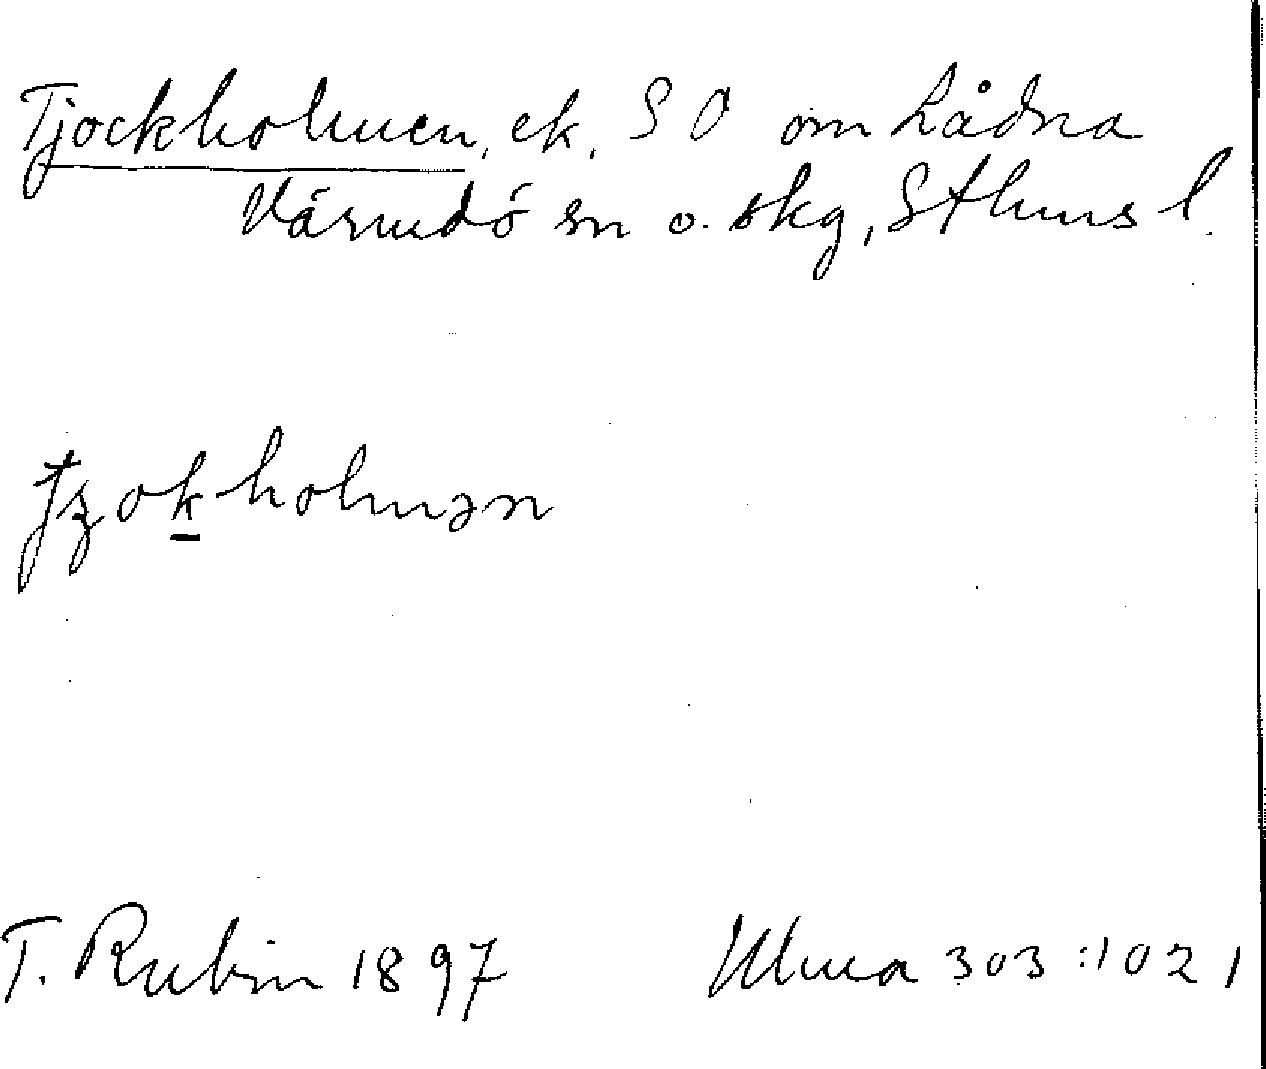 Tjockholmen, ek. SO om Lådna
Värmdö sn o. skg, Sthms l.
tʒok̲holmən
T. Rubin 1897 Ulma 303:1021